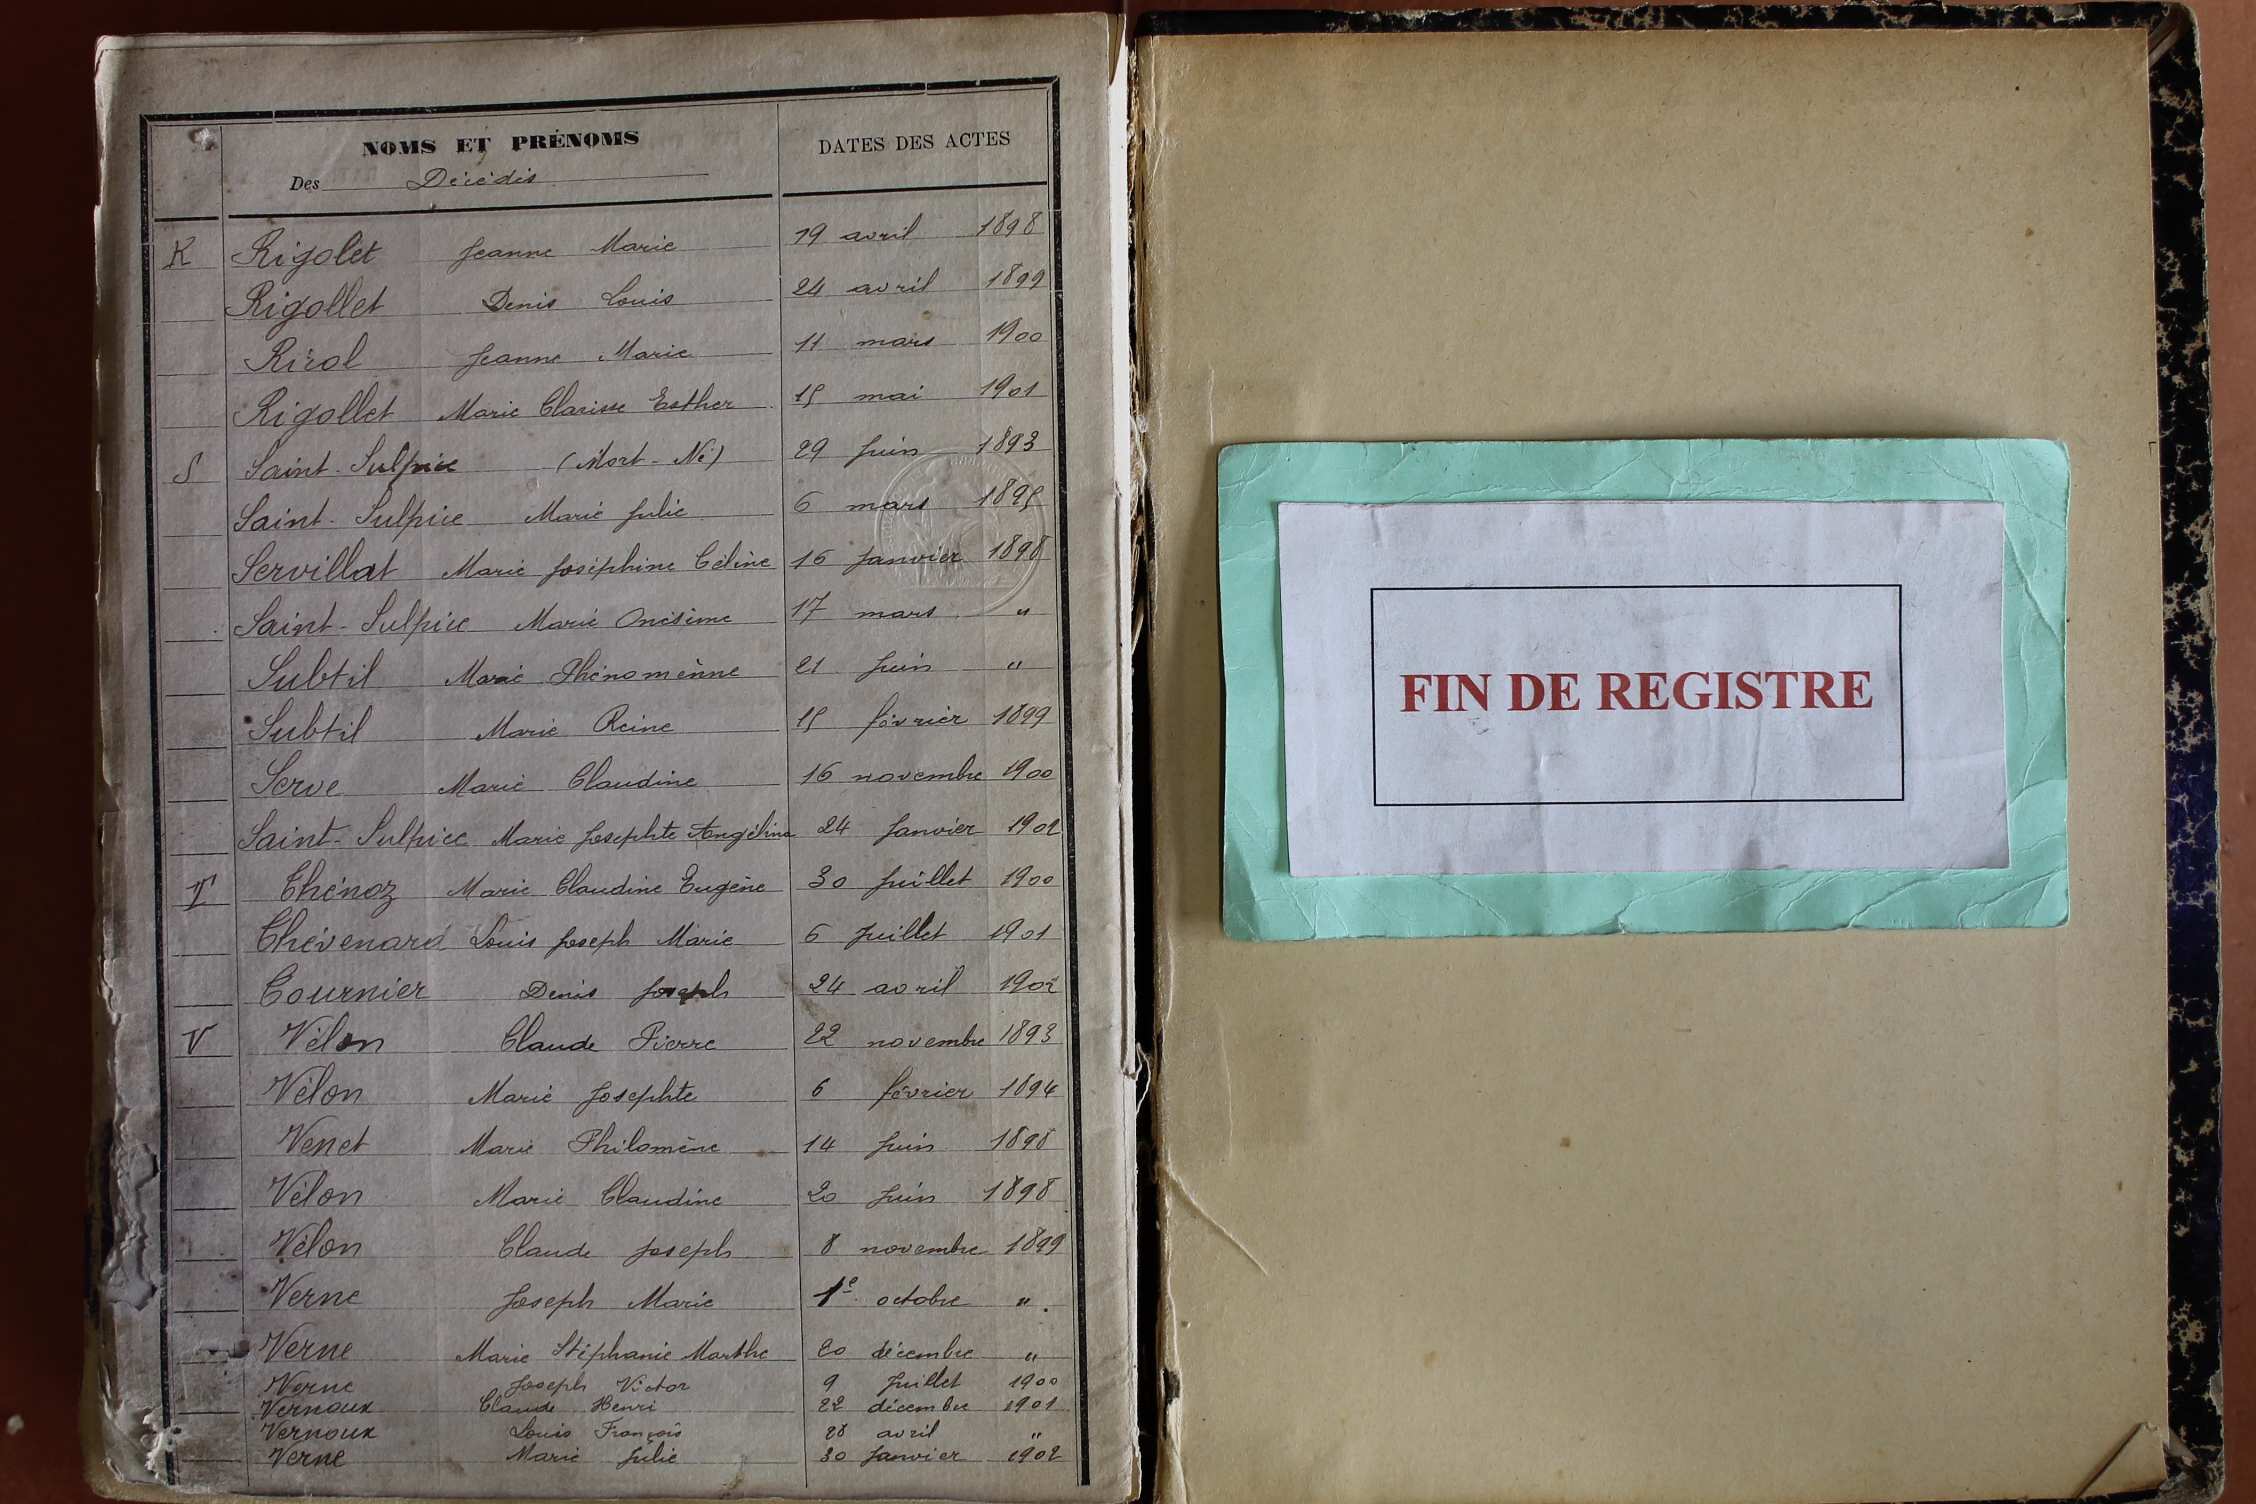 NOMS ET PRÉNOMS DATES DES ACTES
Des Décédés
R Rigolet Jeanne Marie 19 avril 1898
Rigollet Denis Louis 24 avril 1899
Rirol Jeanne Marie 11 mars 1900
Rigollet Marie Clarisse Esther 15 mai 1901
S Saint-Sulpice (Mort-Né) 29 Juin 1893
Saint-Sulpice Marie Julie 6 mars 1895
Servillat Marie Joséphine Céline 16 Janvier 1898
Saint-Sulpice Marie Onésime 17 mars "
Subtil Marie Phénomènne 21 Juin "
Subtil Marie Reine 15 février 1899
Serve Marie Claudine 16 novembre 1900
Saint-Sulpice Marie Josephte Angélina 24 Janvier 1902
T Thénoz Marie Claudine Eugène 30 Juillet 1900
Thévenard Louis Joseph Marie 6 Juillet 1901
Tournier Denis Joseph 24 avril 1902
V Vélon Claude Pierre 22 novembre 1893
Vélon Marie Josephte 6 février 1894
Venet Marie Philomène 14 Juin 1898
Vélon Marie Claudine 20 Juin 1898
Vélon Claude Joseph 8 novembre 1899
Verne Joseph Marie 1e octobre "
Verne Marie Stéphanie Marthe 20 décembre "
Verne Joseph Victor 9 Juillet 1900
Vernoux Claude Henri 22 décembre 1901
Vernoux Louis François 28 avril "
Verne Marie Julie 30 Janvier 1902
FIN DE REGISTRE